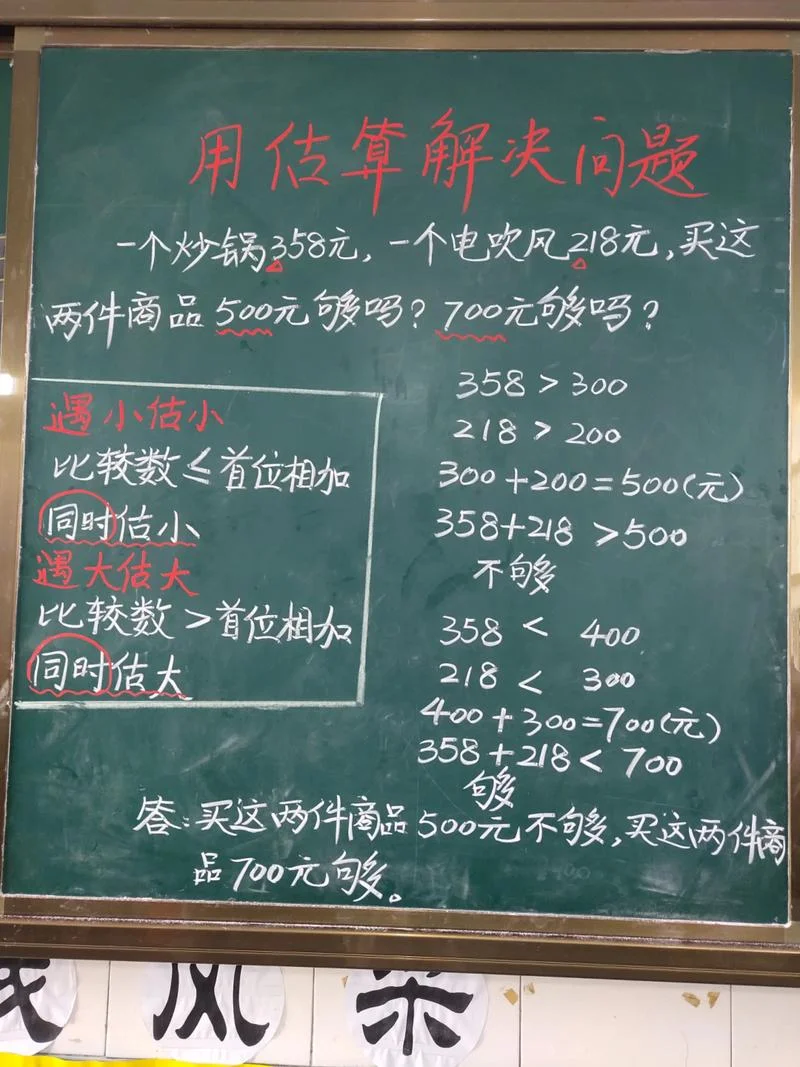 用估算解决问题
一个炒锅358元,一个电吹风218元,买这
两件商品500元够吗?700元够吗?
遇小估小
比较数≤首位相加
同时估小
遇大估大
比较数>首位相加
同时估大
358>300
218>200
300+200=500(元)
358+218>500
不够
358<400
218<300
400+300=700(元)
358+218<700
够
答:买这两件商品500元不够,买这两件商
品700元够。
风采